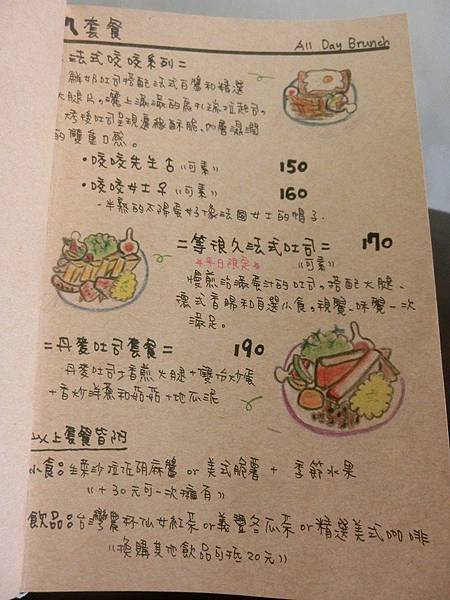 套餐
All Day Brunch
法式咬咬系列=
鮮奶吐司搭配法式白醬和精選
火腿片。灑上滿滿的馬扎瑞拉起司。
烤後吐司呈現邊緣酥脆、內層濕潤
的雙重口感。
·咬咬先生古((可素)) 150
·咬咬女士子((可素)) 160
-半熟的太陽蛋好像法國女士的帽子.
=等很久法式吐司= 170
*平日限定* ((可素))
慢煎沾滿蛋汁的吐司。搭配火腿、
德式香腸和自選小食。視覺、味覺一次
滿足。
=丹麥吐司套餐= 190
丹麥吐司+香煎火腿+雙份炒蛋
+香炒洋蔥和菇菇+地瓜泥
以上套餐皆附
小食:生菜沙拉佐胡麻醬 or 美式脆薯 + 季節水果
((+30元可一次擁有))
飲品:台灣農林仙女紅茶 or 義豐冬瓜茶 or 精選美式咖啡
((換購其他飲品可抵20元))